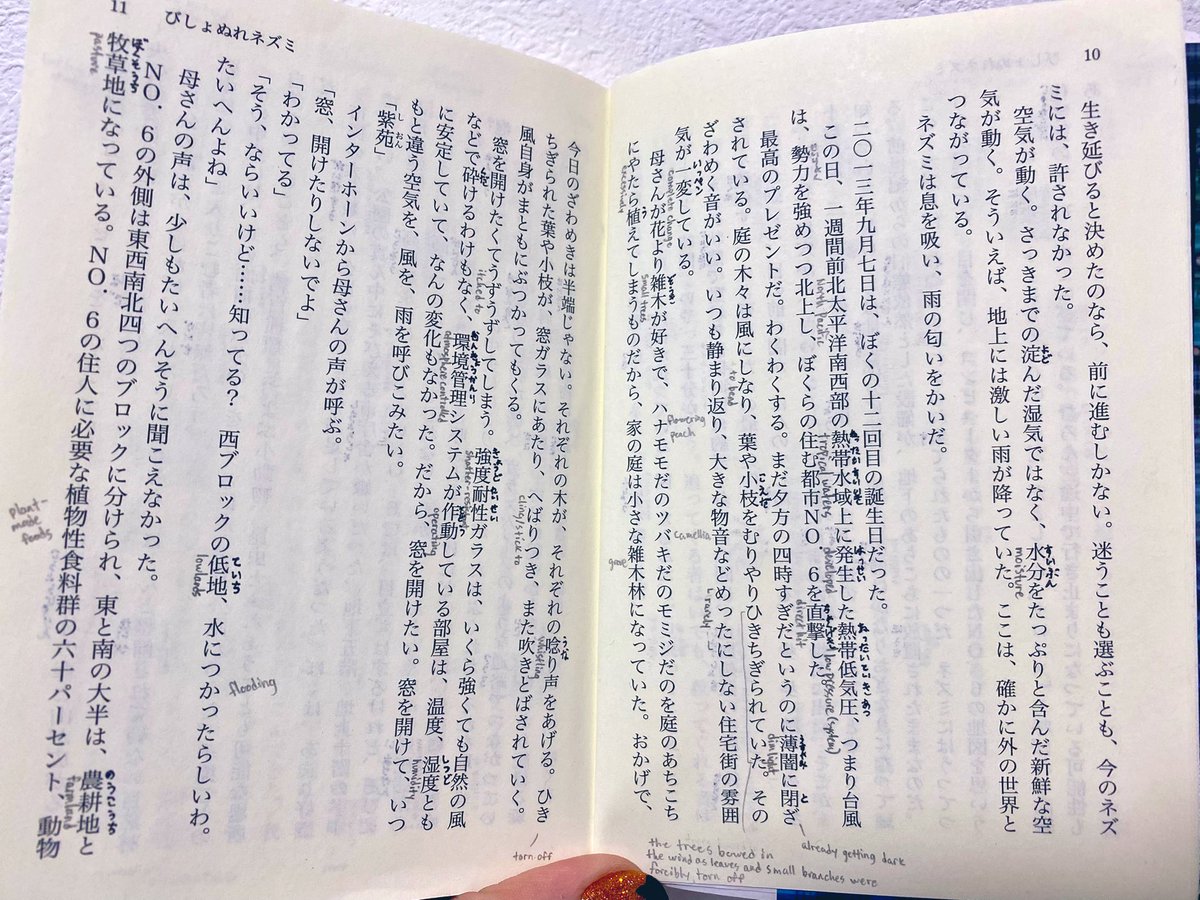 10
生き延びると決めたのなら、前に進むしかない。迷うことも選ぶことも、今のネズ
ミには、許されなかった。
空気が動く。さっきまでの淀んだ湿気ではなく、水分をたっぷりと含んだ新鮮な空
気が動く。そういえば、地上には激しい雨が降っていた。ここは、確かに外の世界と
つながっている。
ネズミは息を吸い、雨の匂いをかいだ。
二〇一三年九月七日は、ぼくの十二回目の誕生日だった。
この日、一週間前北太平洋南西部の熱帯水域上に発生した熱帯低気圧、つまり台風
は、勢力を強めつつ北上し、ぼくらの住む都市NO．6を直撃した
最高のプレゼントだ。わくわくする。まだ夕方の四時すぎだというのに薄闇に閉ざ
されている。庭の木々は風にしなり、葉や小枝をむりやりひきちぎられていた。その
ざわめく音がいい。いつも静まり返り、大きな物音などめったにしない住宅街の雰囲
気が一変している。
母さんが花より雑木が好きで、ハナモモだのツバキだのモミジだのを庭のあちこち
にやたら植えてしまうものだから、家の庭は小さな雑木林になっていた。おかげで、
もど
すいぶん
moisture
North Pacific
tropical waters
はっせい
developed
low pressure (system)
direct hit
うすやみ
dim light
と
to bend
こえだ
rarely
いっぺん
complete change
small trees
flowering peach
camellia
grove
excessively
already getting dark
the trees bowed in
the wind as leaves and small branches were
forcibly torn off
11
びしょぬれネズミ
今日のざわめきは半端じゃない。それぞれの木が、それぞれの唸り声をあげる。ひき
ちぎられた葉や小枝が、窓ガラスにあたり、へばりつき、また吹きとばされていく。
風自身がまともにぶつかってもくる。
窓を開けたくてうずうずしてしまう。強度耐性ガラスは、いくら強くても自然の風
などで砕けるわけもなく、環境管理システムが作動している部屋は、温度、湿度とも
に安定していて、なんの変化もなかった。だから、窓を開けたい。窓を開けて、いつ
もと違う空気を、風を、雨を呼びこみたい。
「紫苑」
しおん
インターホーンから母さんの声が呼ぶ。
「窓、開けたりしないでよ」
「わかってる」
「そう、ならいいけど……知ってる？　西ブロックの低地、水につかったらしいわ。
たいへんよね」
母さんの声は、少しもたいへんそうに聞こえなかった。
NO．6の外側は東西南北四つのブロックに分けられ、東と南の大半は、農耕地と
牧草地になっている。NO．6の住人に必要な植物性食料群の六十パーセント、動物
うな
torn off
cling/stick to
itched to
shatter-resistant
くだ
atmosphere controlled
operating
しつど
humidity
ていち
lowlands
flooding
のうこうち
farmland
ぼくそうち
pasture
plant-
made
foods